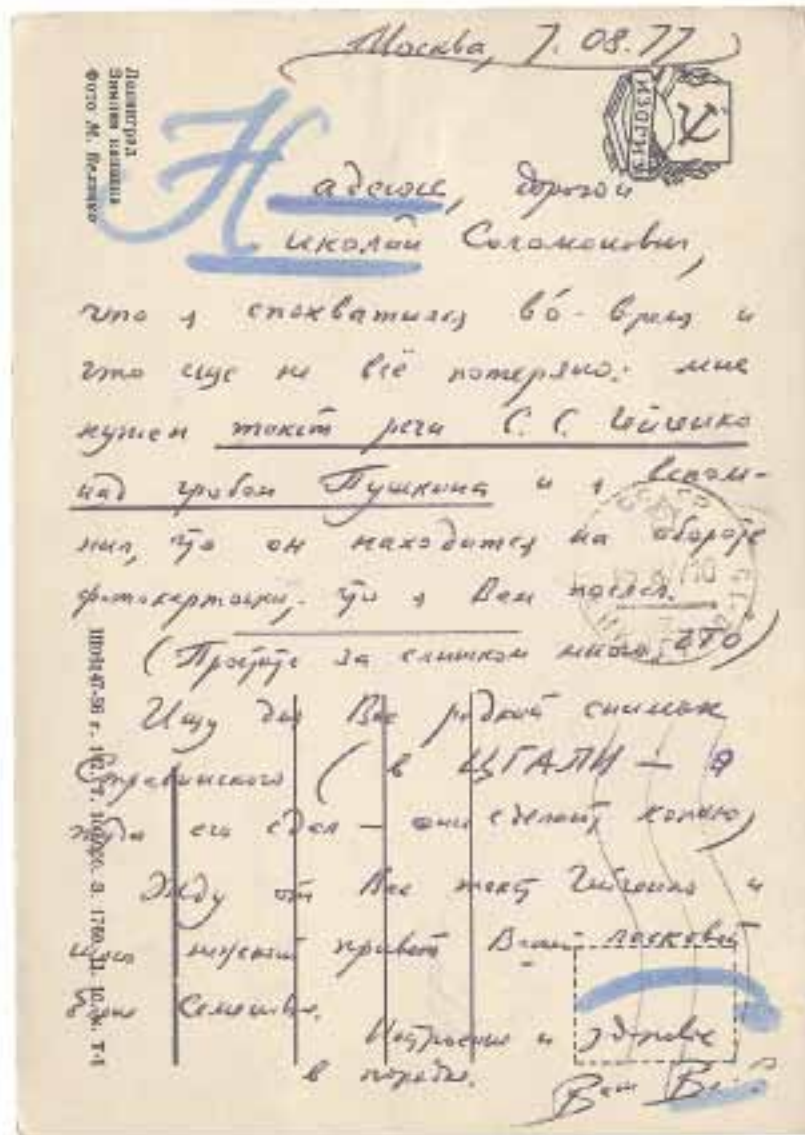 Москва, 7.08.77
Ленинград
Зимняя канавка
Фото М. Величко
ИЗОГИЗ
Надеюсь, дорогой
Николай Соломонович,
что я спохватился во́-время и
что еще не всё потеряно: мне
нужен текст речи С. С. Гейченко
над гробом Пушкина и я вспом-
нил, что он находится на обороте
фотокарточки, что я Вам послал.
(Простите за слишком много „что")
Ищу для Вас редкий снимок
Стравинского (в ЦГАЛИ — я
туда его сдал — они сделают копию)
Жду от Вас текст Гейченко и
шлю нежный привет Вашей ласковой
Семеновне.
Настроение и здоровье
в порядке.
Ваш